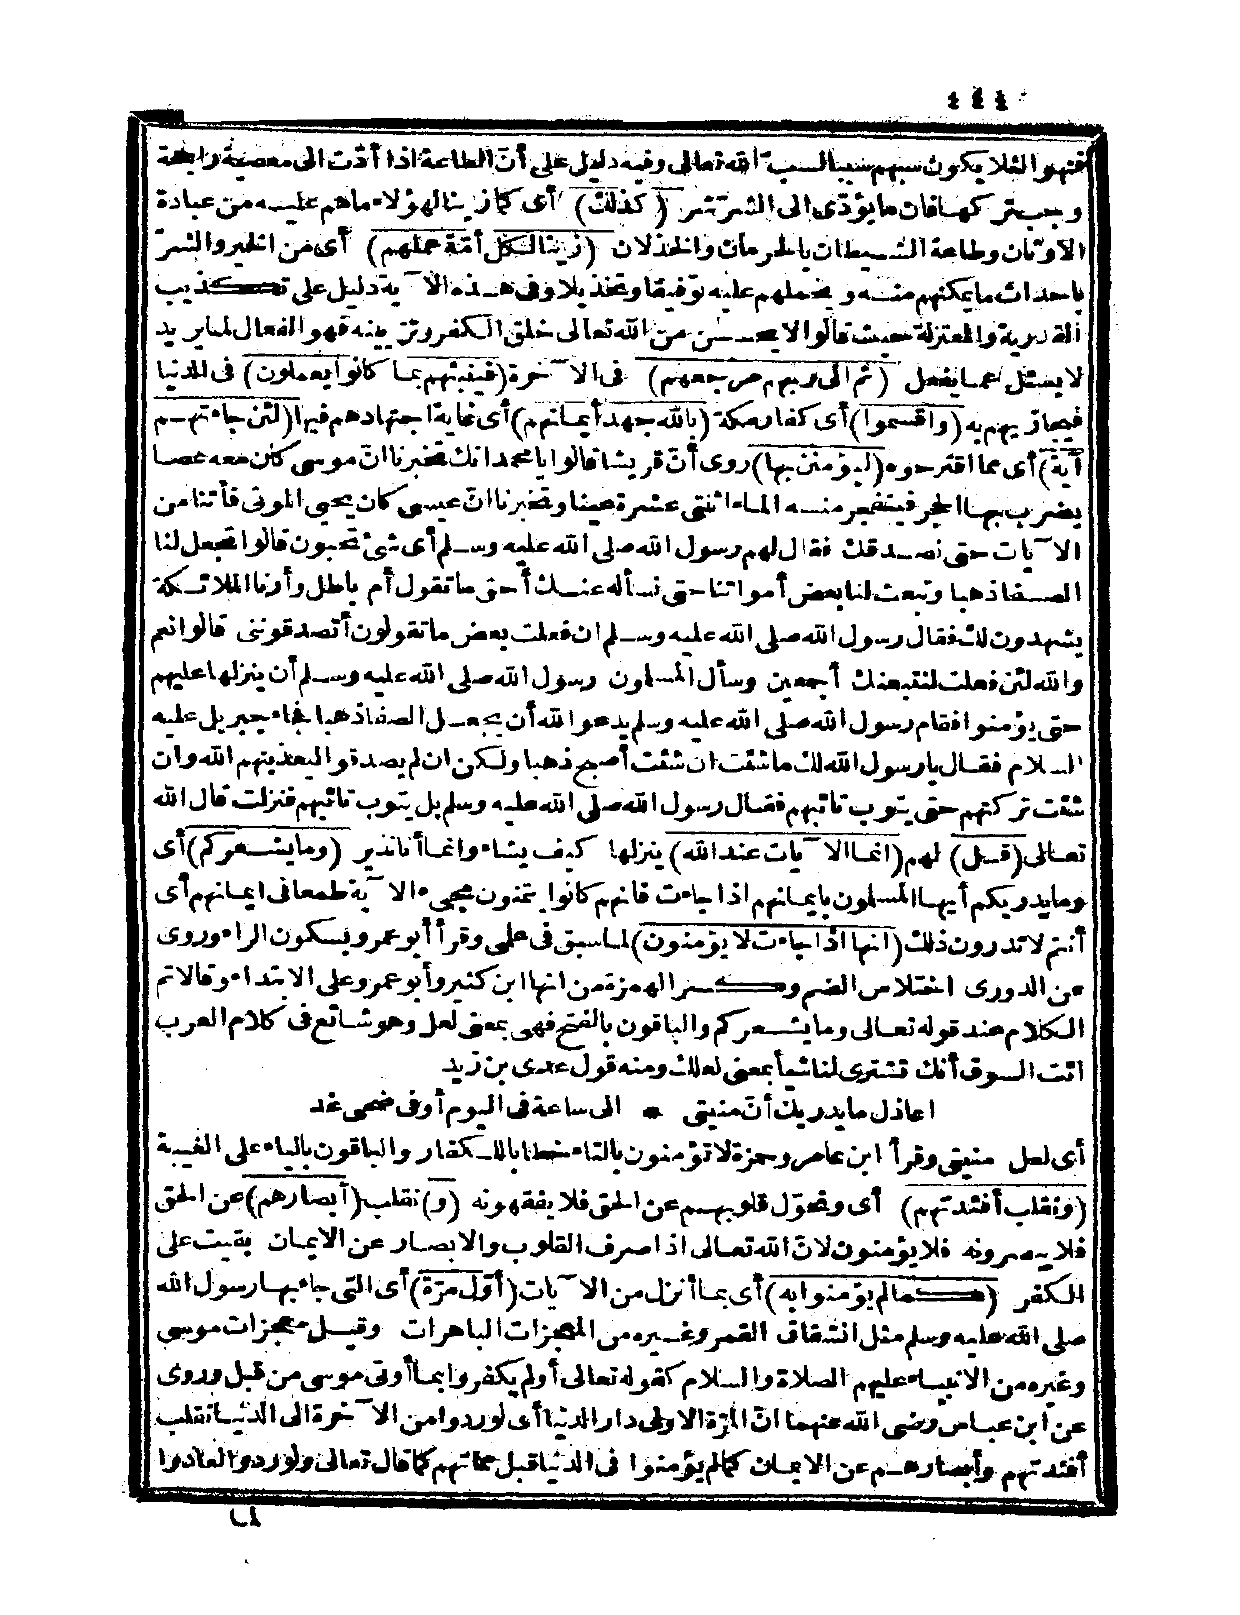 ٤٤٤
فنهوا لئلا يكون سبهم سببا لسب الله تعالى وفيه دليل على أنّ الطاعة اذا أدّت الى معصية راجحة
وجب تركها فان ما يؤدّى الى الشرّ شر (كذلك) أى كما زينا لهؤلاء ما هم عليه من عبادة
الاوثان وطاعة الشيطان بالحرمان والخذلان (زينا لكل أمّة عملهم) أى من الخير والشرّ
باحداث ما يمكنهم منه ويحملهم عليه توفيقا وتخذيلا وفى هذه الآية دليل على تكذيب
القدرية والمعتزلة حيث قالوا لا يحسن من الله تعالى خلق الكفر وتزيينه فهو الفعال لما يريد
لا يسئل عما يفعل (ثم الى ربهم مرجعهم) فى الآخرة (فينبئهم بما كانوا يعملون) فى الدنيا
فيجازيهم به (وأقسموا) أى كفار مكة (بالله جهد أيمانهم) أى غاية اجتهادهم فيها (لئن جاءتهم
آية) أى مما اقترحوه (ليؤمننّ بها) روى أنّ قريشا قالوا يا محمد انك تخبرنا انّ موسى كان معه عصا
يضرب بها الحجر فينفجر منه الماء اثنتى عشرة عينا وتخبرنا انّ عيسى كان يحيى الموتى فأتنا من
الآيات حتى نصدقك فقال لهم رسول الله صلى الله عليه وسلم أى شئ تحبون قالوا تجعل لنا
الصفا ذهبا وتبعث لنا بعض أمواتنا حتى نسأله عنك أحق ما تقول أم باطل وأرنا الملائكة
يشهدون لك فقال رسول الله صلى الله عليه وسلم ان فعلت بعض ما تقولون أتصدقوننى قالوا نعم
والله لئن فعلت لنتبعنك أجمعين وسأل المسلمون رسول الله صلى الله عليه وسلم أن ينزلها عليهم
حتى يؤمنوا فقام رسول الله صلى الله عليه وسلم يدعو الله أن يجعل الصفا ذهبا فجاء جبريل عليه
السلام فقال يا رسول الله لك ما شئت ان شئت أصبح ذهبا ولكن ان لم يصدقوا ليعذبنهم الله وان
شئت تركتهم حتى يتوب تائبهم فقال رسول الله صلى الله عليه وسلم بل يتوب تائبهم فنزلت قال الله
تعالى (قل) لهم (انما الآيات عند الله) ينزلها كيف يشاء وانما أنا نذير (وما يشعركم) أى
وما يدريكم أيها المسلمون بايمانهم اذا جاءت فانهم كانوا يتمنون مجىء الآية طمعا فى ايمانهم أى
أنتم لا تدرون ذلك (انها اذا جاءت لا يؤمنون) لما سبق فى علمى وقرأ أبو عمرو بسكون الراء وروى
عن الدورى اختلاس الضم وكسر الهمزة من انها ابن كثير وأبو عمرو على الابتداء وقالا تم
الكلام عند قوله تعالى وما يشعركم والباقون بالفتح فهى بمعنى لعل وهو شائع فى كلام العرب
ائت السوق أنك تشترى لنا شيأ بمعنى لعلك ومنه قول عدى بن زيد
اعاذل ما يدريك أنّ منيتى * الى ساعة فى اليوم أو فى ضحى غد
أى لعل منيتى وقرأ ابن عامر وحمزة لا تؤمنون بالتاء خطابا للكفار والباقون بالياء على الغيبة
(ونقلب أفئدتهم) أى ونحوّل قلوبهم عن الحق فلا يفقهونه (و) نقلب (أبصارهم) عن الحق
فلا يبصرونه فلا يؤمنون لانّ الله تعالى اذا صرف القلوب والابصار عن الايمان بقيت على
الكفر (كما لم يؤمنوا به) أى بما أنزل من الآيات (أوّل مرّة) أى التى جاء بها رسول الله
صلى الله عليه وسلم مثل انشقاق القمر وغيره من المعجزات الباهرات وقيل معجزات موسى
وغيره من الانبياء عليهم الصلاة والسلام كقوله تعالى أولم يكفروا بما أوتى موسى من قبل وروى
عن ابن عباس رضى الله عنهما انّ المرّة الاولى دار الدنيا أى لو ردوا من الآخرة الى الدنيا نقلب
أفئدتهم وأبصارهم عن الايمان كما لم يؤمنوا فى الدنيا قبل مماتهم كما قال تعالى ولو ردوا لعادوا
لما